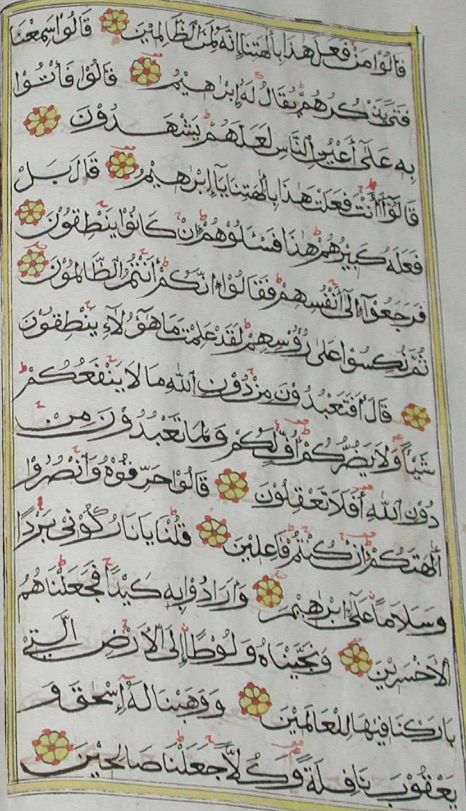 قَالُوا مَنْ فَعَلَ هٰذَا بِاٰلِهَتِنَا اِنَّهُ لَمِنَ الظَّالِمِيْنَ قَالُوا سَمِعْنَا
فَتًى يَذْكُرُهُمْ يُقَالُ لَهُ اِبْرَاهِيْمُ قَالُوْا فَأْتُوْا
بِهِ عَلٰى اَعْيُنِ النَّاسِ لَعَلَّهُمْ يَشْهَدُوْنَ
قَالُوْا ءَاَنْتَ فَعَلْتَ هٰذَا بِاٰلِهَتِنَا يَا اِبْرٰهِيْمُ قَالَ بَلْ
فَعَلَهُ كَبِيْرُهُمْ هٰذَا فَسْـَٔلُوْهُمْ اِنْ كَانُوْا يَنْطِقُوْنَ
فَرَجَعُوْا اِلٰى اَنْفُسِهِمْ فَقَالُوْا اِنَّكُمْ اَنْتُمُ الظَّالِمُوْنَ
ثُمَّ نُكِسُوْا عَلٰى رُؤُسِهِمْ لَقَدْ عَلِمْتَ مَا هٰٓؤُلَآءِ يَنْطِقُوْنَ
قَالَ اَفَتَعْبُدُوْنَ مِنْ دُوْنِ اللّٰهِ مَا لَا يَنْفَعُكُمْ
شَيْـًٔا وَلَا يَضُرُّكُمْ اُفٍّ لَكُمْ وَلِمَا تَعْبُدُوْنَ مِنْ
دُوْنِ اللّٰهِ اَفَلَا تَعْقِلُوْنَ قَالُوْا حَرِّقُوْهُ وَانْصُرُوْا
اٰلِهَتَكُمْ اِنْ كُنْتُمْ فَاعِلِيْنَ قُلْنَا يَا نَارُ كُوْنِيْ بَرْدًا
وَسَلَامًا عَلٰى اِبْرٰهِيْمَ وَاَرَادُوْا بِهِ كَيْدًا فَجَعَلْنَاهُمُ
الْاَخْسَرِيْنَ وَنَجَّيْنَاهُ وَلُوْطًا اِلَى الْاَرْضِ الَّتِيْ
بَارَكْنَا فِيْهَا لِلْعَالَمِيْنَ وَوَهَبْنَا لَهُ اِسْحٰقَ وَ
يَعْقُوْبَ نَافِلَةً وَكُلًّا جَعَلْنَا صَالِحِيْنَ